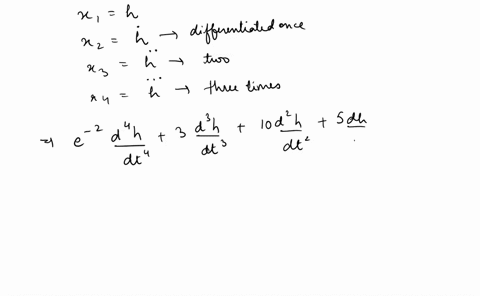 x₁ = h
x₂ = ḣ → differentiated once
x₃ = ḧ → two
x₄ = h⃛ → three times
⇒ e⁻² d⁴h/dt⁴ + 3 d³h/dt³ + 10 d²h/dt² + 5 dh